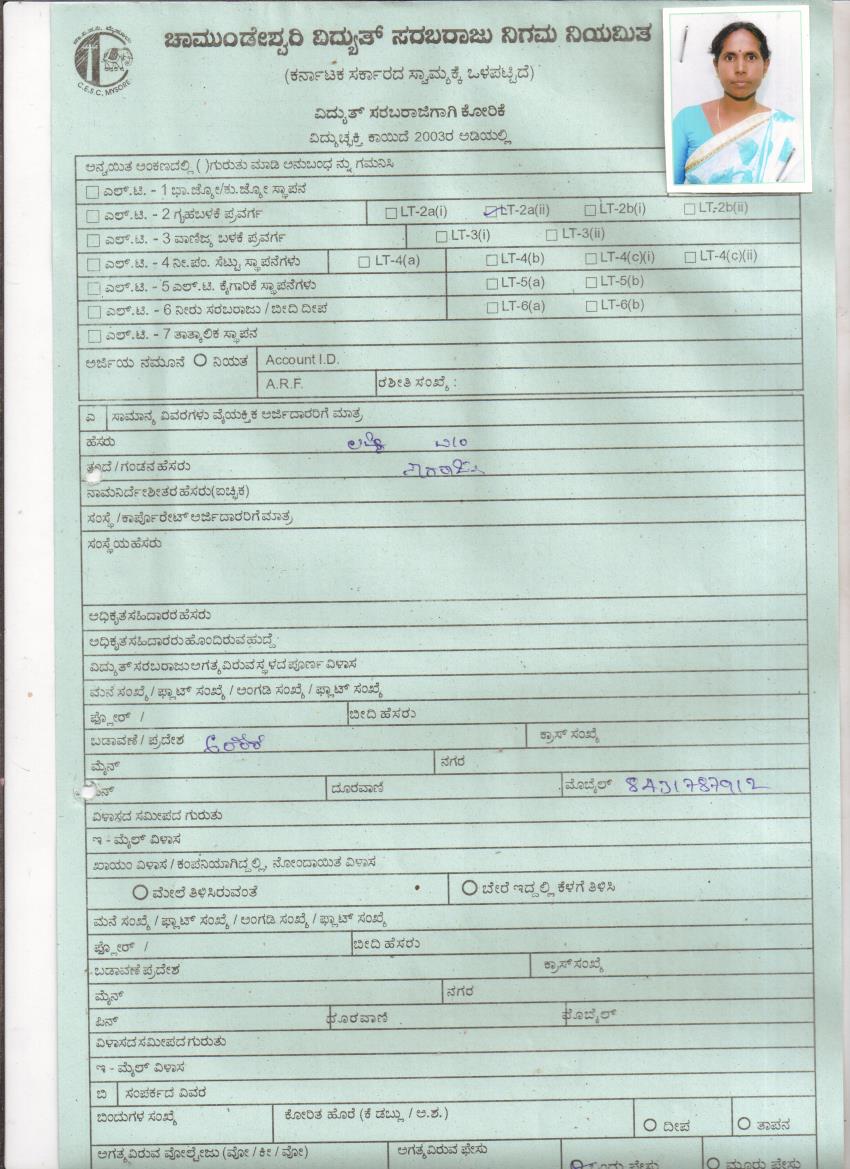 ಚಾಮುಂಡೇಶ್ವರಿ ವಿದ್ಯುತ್ ಸರಬರಾಜು ನಿಗಮ ನಿಯಮಿತ
C.E.S.C, MYSORE
(ಕರ್ನಾಟಕ ಸರ್ಕಾರದ ಸ್ವಾಮ್ಯಕ್ಕೆ ಒಳಪಟ್ಟಿದೆ)
ವಿದ್ಯುತ್ ಸರಬರಾಜಿಗಾಗಿ ಕೋರಿಕೆ
ವಿದ್ಯುಚ್ಛಕ್ತಿ ಕಾಯಿದೆ 2003ರ ಅಡಿಯಲ್ಲಿ
ಅನ್ವಯಿತ ಅಂಕಣದಲ್ಲಿ ( )ಗುರುತು ಮಾಡಿ ಅನುಬಂಧ ನ್ನು ಗಮನಿಸಿ
ಎಲ್.ಟಿ. - 1 ಭಾ.ಜ್ಯೋ/ಕು.ಜ್ಯೋ ಸ್ಥಾಪನ
ಎಲ್.ಟಿ. - 2 ಗೃಹಬಳಕೆ ಪ್ರವರ್ಗ LT-2a(i) LT-2a(ii) LT-2b(i) LT-2b(ii)
ಎಲ್.ಟಿ. - 3 ವಾಣಿಜ್ಯ ಬಳಕೆ ಪ್ರವರ್ಗ LT-3(i) LT-3(ii)
ಎಲ್.ಟಿ. - 4 ನೀ.ಪಂ. ಸೆಟ್ಟು ಸ್ಥಾಪನೆಗಳು LT-4(a) LT-4(b) LT-4(c)(i) LT-4(c)(ii)
ಎಲ್.ಟಿ. - 5 ಎಲ್.ಟಿ. ಕೈಗಾರಿಕೆ ಸ್ಥಾಪನೆಗಳು LT-5(a) LT-5(b)
ಎಲ್.ಟಿ. - 6 ನೀರು ಸರಬರಾಜು / ಬೀದಿ ದೀಪ LT-6(a) LT-6(b)
ಎಲ್.ಟಿ. - 7 ತಾತ್ಕಾಲಿಕ ಸ್ಥಾಪನ
ಅರ್ಜಿಯ ನಮೂನೆ ನಿಯತ Account I.D.
A.R.F. ರಶೀತಿ ಸಂಖ್ಯೆ :
ಎ ಸಾಮಾನ್ಯ ವಿವರಗಳು ವೈಯಕ್ತಿಕ ಅರ್ಜಿದಾರರಿಗೆ ಮಾತ್ರ
ಹೆಸರು
ತಂದೆ / ಗಂಡನ ಹೆಸರು
ನಾಮನಿರ್ದೇಶಿತರ ಹೆಸರು(ಐಚ್ಛಿಕ)
ಸಂಸ್ಥೆ /ಕಾರ್ಪೊರೇಟ್ ಅರ್ಜಿದಾರರಿಗೆ ಮಾತ್ರ
ಸಂಸ್ಥೆಯ ಹೆಸರು
ಅಧಿಕೃತ ಸಹಿದಾರರ ಹೆಸರು
ಅಧಿಕೃತ ಸಹಿದಾರರು ಹೊಂದಿರುವ ಹುದ್ದೆ
ವಿದ್ಯುತ್ ಸರಬರಾಜು ಅಗತ್ಯವಿರುವ ಸ್ಥಳದ ಪೂರ್ಣ ವಿಳಾಸ
ಮನೆ ಸಂಖ್ಯೆ / ಫ್ಲಾಟ್ ಸಂಖ್ಯೆ / ಅಂಗಡಿ ಸಂಖ್ಯೆ / ಫ್ಲಾಟ್ ಸಂಖ್ಯೆ
ಫ್ಲೋರ್ / ಬೀದಿ ಹೆಸರು
ಬಡಾವಣೆ / ಪ್ರದೇಶ ಕ್ರಾಸ್ ಸಂಖ್ಯೆ
ಮೈನ್ ನಗರ
ಪಿನ್ ದೂರವಾಣಿ ಮೊಬೈಲ್ 8431787912
ವಿಳಾಸದ ಸಮೀಪದ ಗುರುತು
ಇ - ಮೈಲ್ ವಿಳಾಸ
ಖಾಯಂ ವಿಳಾಸ / ಕಂಪನಿಯಾಗಿದ್ದಲ್ಲಿ, ನೋಂದಾಯಿತ ವಿಳಾಸ
ಮೇಲೆ ತಿಳಿಸಿರುವಂತೆ ಬೇರೆ ಇದ್ದಲ್ಲಿ ಕೆಳಗೆ ತಿಳಿಸಿ
ಮನೆ ಸಂಖ್ಯೆ / ಫ್ಲಾಟ್ ಸಂಖ್ಯೆ / ಅಂಗಡಿ ಸಂಖ್ಯೆ / ಫ್ಲಾಟ್ ಸಂಖ್ಯೆ
ಫ್ಲೋರ್ / ಬೀದಿ ಹೆಸರು
ಬಡಾವಣೆ ಪ್ರದೇಶ ಕ್ರಾಸ್ ಸಂಖ್ಯೆ
ಮೈನ್ ನಗರ
ಪಿನ್ ದೂರವಾಣಿ ಮೊಬೈಲ್
ವಿಳಾಸದ ಸಮೀಪದ ಗುರುತು
ಇ - ಮೈಲ್ ವಿಳಾಸ
ಬಿ ಸಂಪರ್ಕದ ವಿವರ
ಬಿಂದುಗಳ ಸಂಖ್ಯೆ ಕೋರಿತ ಹೊರೆ (ಕೆ ಡಬ್ಲು / ಅ.ಶ.) ದೀಪ ತಾಪನ
ಅಗತ್ಯವಿರುವ ವೋಲ್ಟೇಜು (ವೋ / ಕೀ / ವೋ) ಅಗತ್ಯವಿರುವ ಫೇಸು ಫೇಸು ಮೂರು ಫೇಸು